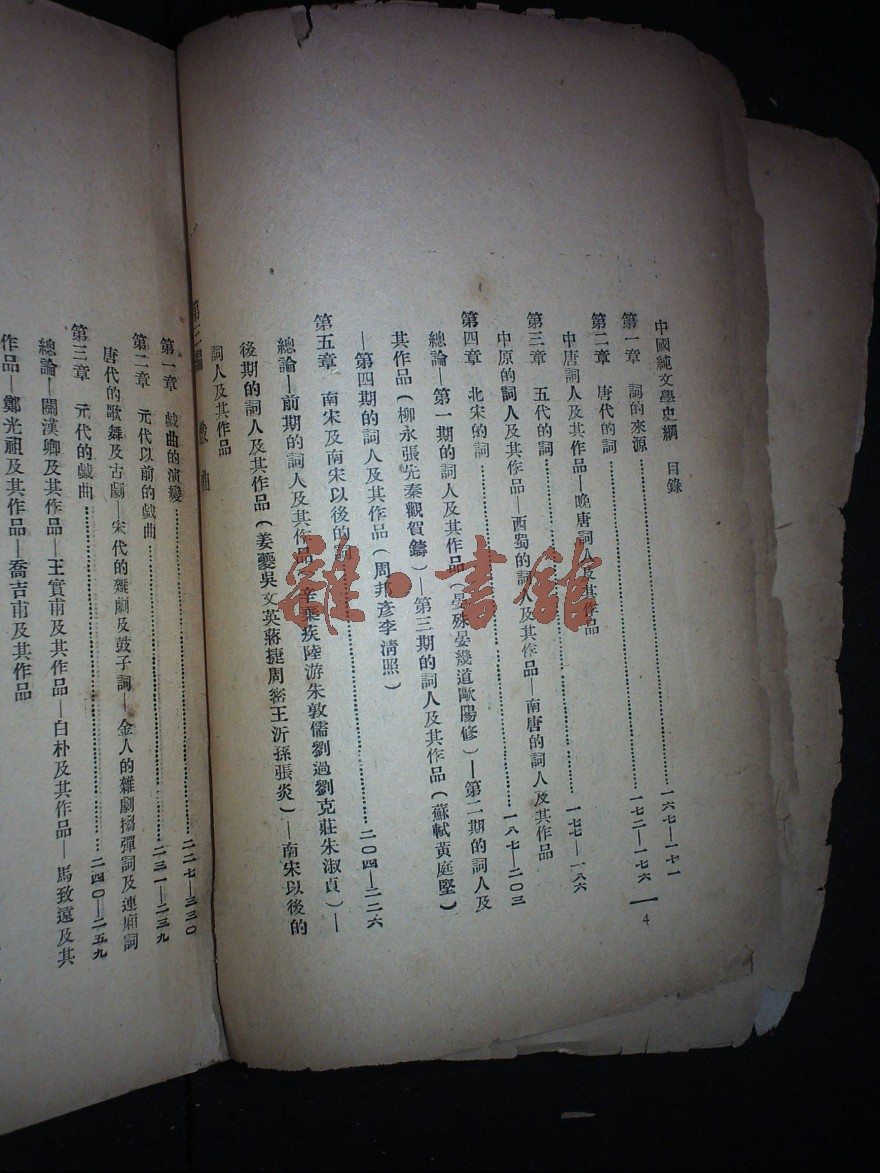 中國純文學史綱　目錄
第一章　詞的來源……一六七—一七一
第二章　唐代的詞……一七二—一七六
中唐詞人及其作品—晚唐詞人及其作品
第三章　五代的詞……一七七—一八六
中原的詞人及其作品—西蜀的詞人及其作品—南唐的詞人及其作品
第四章　北宋的詞……一八七—二〇三
總論—第一期的詞人及其作品（晏殊晏幾道歐陽修）—第二期的詞人及
其作品（柳永張先秦觀賀鑄）—第三期的詞人及其作品（蘇軾黃庭堅）
—第四期的詞人及其作品（周邦彥李清照）
第五章　南宋及南宋以後的詞……二〇四—二二六
總論—前期的詞人及其作品（辛棄疾陸游朱敦儒劉過劉克莊朱淑貞）—
後期的詞人及其作品（姜夔吳文英蔣捷周密王沂孫張炎）—南宋以後的
詞人及其作品
4
第三編　戲曲
第一章　戲曲的演變……二二七—三三〇
第二章　元代以前的戲曲……二三一—二三九
唐代的歌舞及古劇—宋代的雜劇及鼓子詞—金人的雜劇搊彈詞及連廂詞
第三章　元代的戲曲……二四〇—二五九
總論—關漢卿及其作品—王實甫及其作品—白朴及其作品—馬致遠及其
作品—鄭光祖及其作品—喬吉甫及其作品
雜·書館